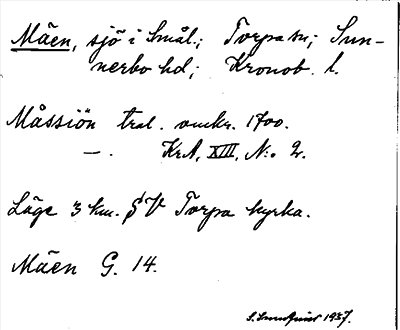 Mäen, sjö i Smål.; Torpa sn; Sun-
nerbo hd; Kronob. l.
Måssiön tral. omkr. 1700.
— . KrA, XIII, N:o 2.
Läge 3 km. SV Torpa kyrka.
Mäen G. 14.
1937.